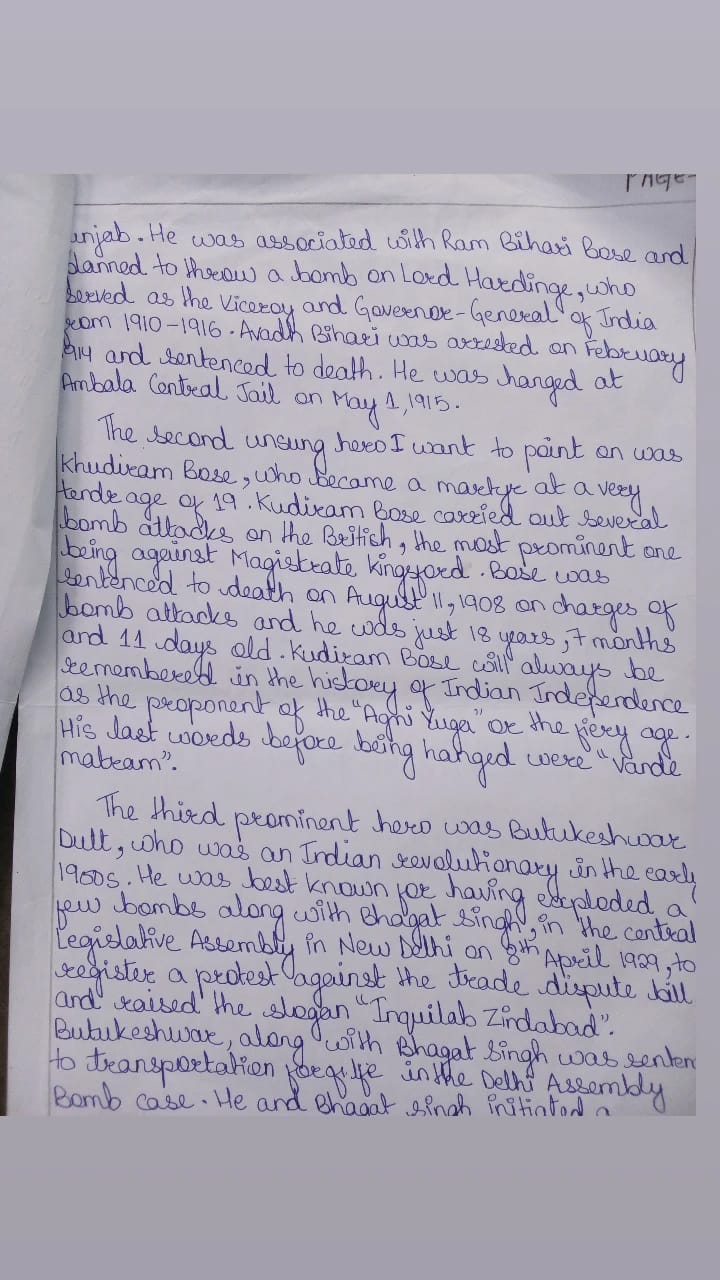 PAGE-
unjab. He was associated with Ram Bihari Bose and
planned to throw a bomb on Lord Hardinge, who
served as the Viceroy and Governor-General of India
rom 1910-1916. Avadh Bihari was arrested on February
1914 and sentenced to death. He was hanged at
Ambala Central Jail on May 1, 1915.
The second unsung hero I want to point on was
Khudiram Bose, who became a martyr at a very
tende age of 19. Kudiram Bose carried out several
bomb attacks on the British, the most prominent one
being against Magistrate Kingsford. Bose was
sentenced to death on August 11, 1908 on charges of
bomb attacks and he was just 18 years, 7 months
and 11 days old. Kudiram Bose will always be
remembered in the history of Indian Independence
as the proponent of the "Agni Yuga" or the fiery age.
His last words before being hanged were "Vande
matram".
The third prominent hero was Butukeshwar
Dutt, who was an Indian revolutionary in the early
1900s. He was best known for having exploded a
few bombs along with Bhagat Singh, in the central
Legislative Assembly in New Delhi on 8th April 1929, to
register a protest against the trade dispute bill
and raised the slogan "Inquilab Zindabad".
Butukeshwar, along with Bhagat Singh was senten
to transportation for life in the Delhi Assembly
Bomb case. He and Bhagat Singh initiated a